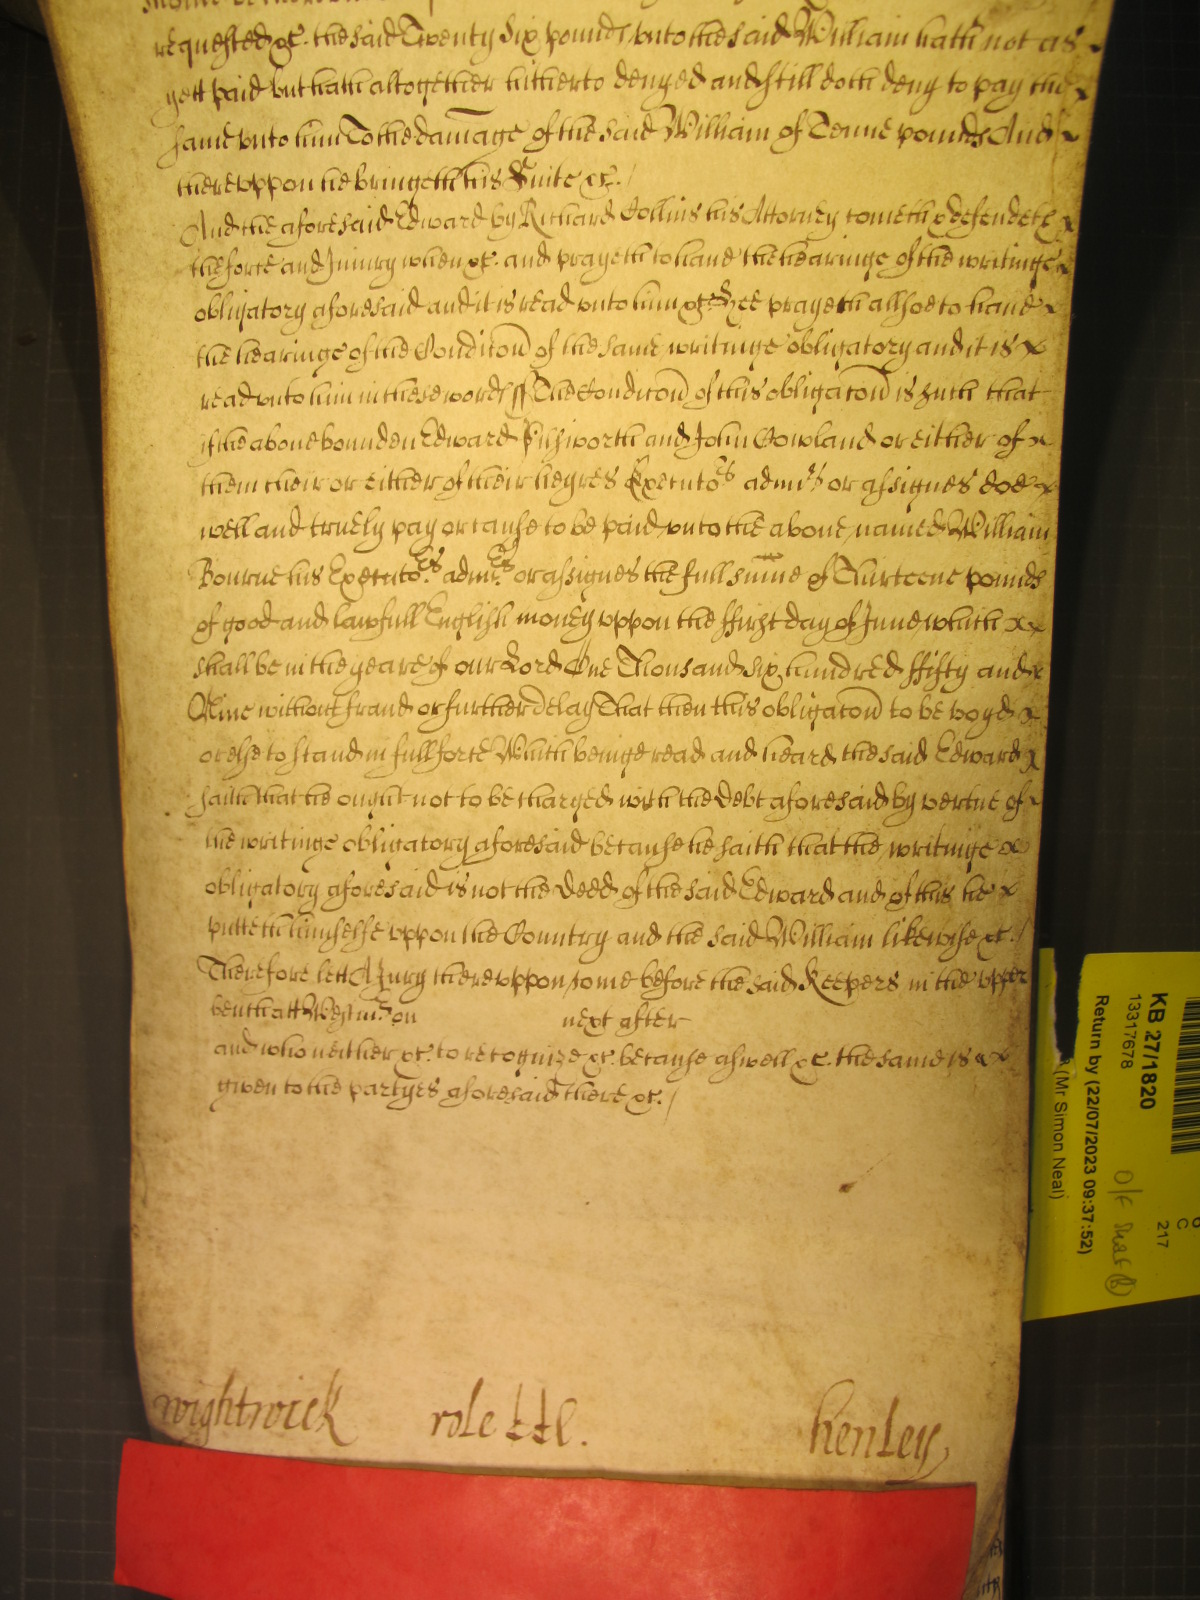 requested &c. the said Twenty six pounds unto the said William hath not as
yett paid but hath altogether hitherto denyed and still doth deny to pay the
same unto him To the damage of the said William of Tenne pounds And
thereuppon he bringeth his Suite &c.
And the aforesaid Edward by Richard Collins his Attorney cometh & defendeth
the force and Iniury when &c. and prayeth to have the hearinge of the writinge
obligatory aforesaid and it is read unto him &c. Hee prayeth allsoe to have
the hearinge of the Condicon of the same writinge obligatory and it is
read unto him in these words ss The Condicon of this obligacon is such that
if the above bounden Edward and John Cowland or either of
them their or either of their heyres Executors admrs or assignes doe
well and truely pay or cause to be paid unto the above named William
Bourne his Executors admrs or assignes the full summe of Thirteene pounds
of good and lawfull English money uppon the ffirst day of June which
shall be in the yeare of our Lord One Thousand six hundred ffifty and
Nine without fraud or further delay That then this obligacon to be voyd
or else to stand in full force Which beinge read and heard the said Edward
saith that he ought not to be charged with the Debt aforesaid by vertue of
the writinge obligatory aforesaid because he saith that the writinge
obligatory aforesaid is not the Deed of the said Edward and of this he
putteth himselfe uppon the Country and the said William likewise &c.
Therefore lett A Jury thereuppon come before the said Keepers in the upper
bench att Westmr. on next after
and who neither &c. to recognize &c. because aswell &c. the same is
given to the partyes aforesaid there &c.
wightwick role ttl. henley
KB 27/1820
13317678
Return by (22/07/2023 09:37:52)
(Mr Simon Neal)
C
217